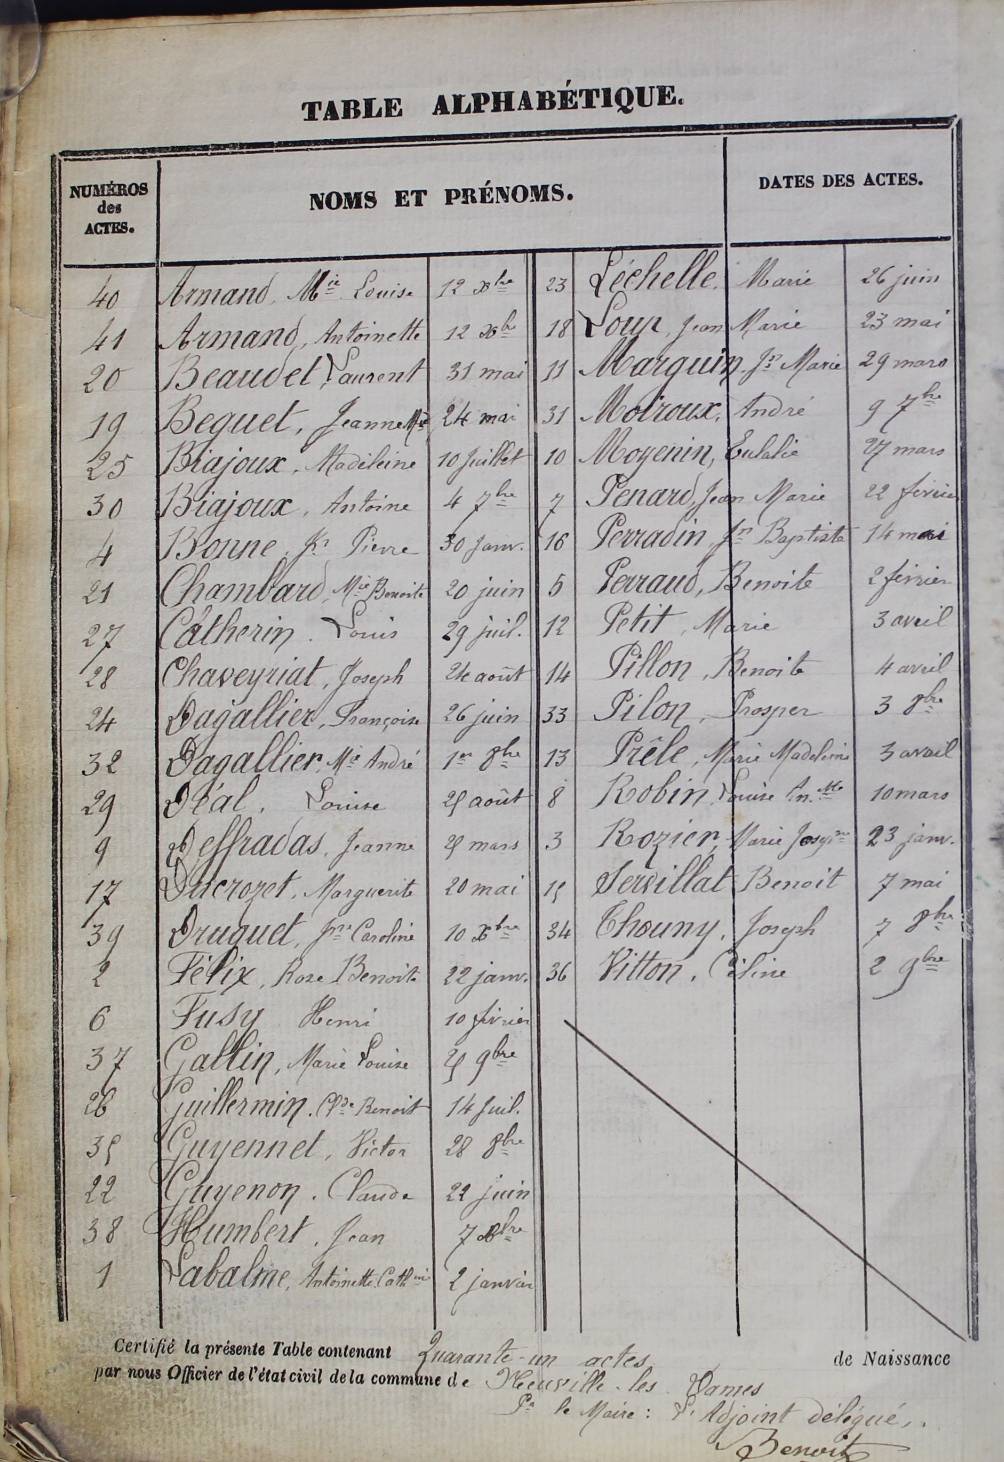 TABLE ALPHABÉTIQUE.
NUMÉROS
des
ACTES.
NOMS ET PRÉNOMS.
DATES DES ACTES.
40 Armand, Mie Louise 12 Xbre
41 Armand, Antoinette 12 Xbre
20 Beaudet Laurent 31 mai
19 Beguet, Jeanne Mie 24 mai
25 Biajoux, Madeleine 10 Juillet
30 Biajoux, Antoine 4 7bre
4 Bonne, Jn Pierre 30 Janv.
21 Chambard, Mie Benoite 20 juin
27 Catherin. Louis 29 juil.
28 Chaveyriat, Joseph 24 août
24 Dagallier, Françoise 26 juin
32 Dagallier, Mie André 1er 8bre
29 Déal, Louise 25 août
9 Deffradas, Jeanne 25 mars
17 Ducrozet, Marguerite 20 mai
39 Druguet, Jne Caroline 10 Xbre
2 Félix, Rose Benoite 22 janv.
6 Fusy Henri 10 février
37 Gallin, Marie Louise 25 9bre
26 Guillermin. Cde Benoit 14 Juil.
35 Guyennet, Victor 28 8bre
22 Guyenon. Claude 22 juin
38 Humbert, Jean 7 Xbre
1 Labalme, Antoinette Cathine 2 janvier
23 Léchelle. Marie 26 juin
18 Loup, Jean Marie 23 mai
11 Marguin. Jn Marie 29 mars
31 Moiroux, André 9 7bre
10 Moyenin, Eulalie 27 mars
7 Penard, Jean Marie 22 février
16 Perradin, Jn Baptiste 14 mai
5 Perraud, Benoite 2 février
12 Petit, Marie 3 avril
14 Pillon, Benoite 4 avril
33 Pilon, Prosper 3 8bre
13 Prêle, Marie Madeleine 3 avril
8 Robin, Louise 10 mars
3 Rozier, Marie Josepine 23 janv.
15 Servillat Benoit 7 mai
34 Thouny, Joseph 7 8bre
36 Vitton, Céline 2 9bre
Certifié la présente Table contenant Quarante-un actes de Naissance
par nous Officier de l'état civil de la commune de Neuville-les-Dames
Pr le Maire: L'Adjoint délégué,
Benoit